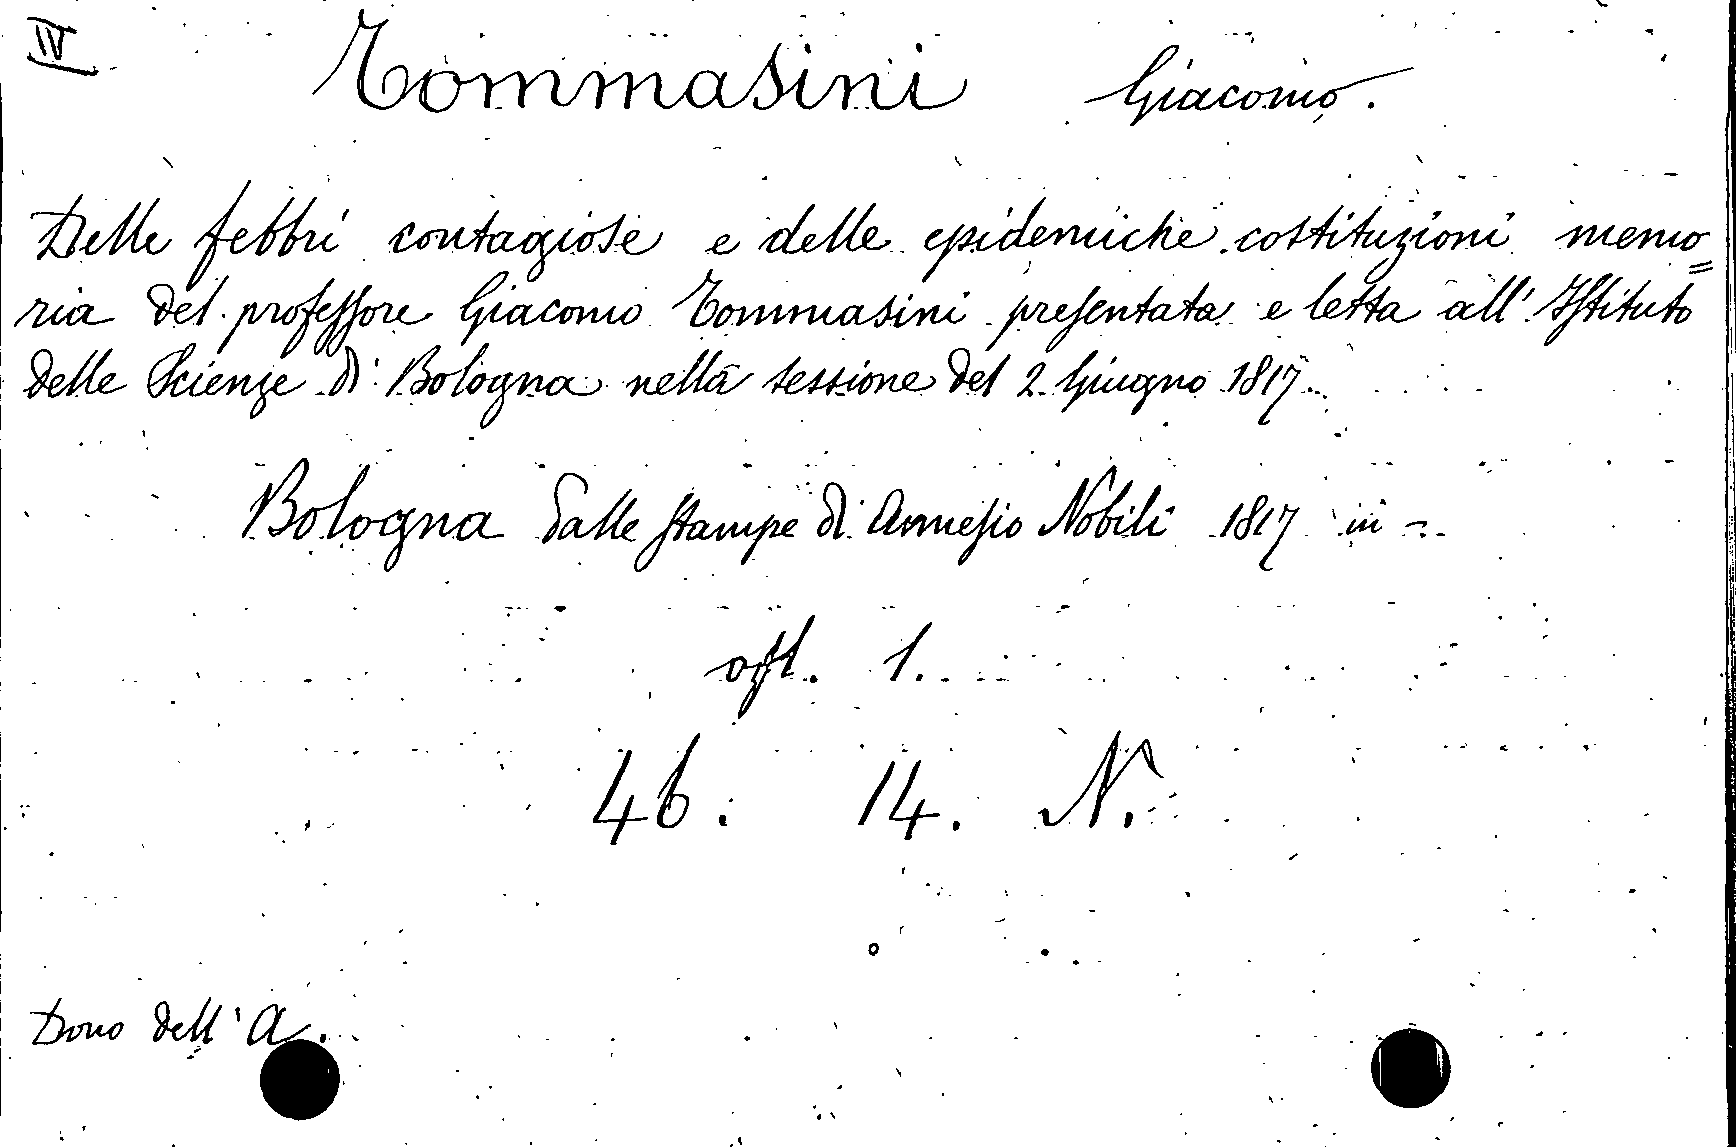 IV
Tommasini Giacomo.
Delle febbri contagiose e delle epidemiche costituzioni memo=
ria del professore Giacomo Tommasini presentata e letta all' Istituto
delle Scienze di Bologna nella sessione del 2 Giugno 1817.
Bologna dalle stampe di Annesio Nobili 1817 in -
opt. 1.
46. 14. N.
Dono dell'A.